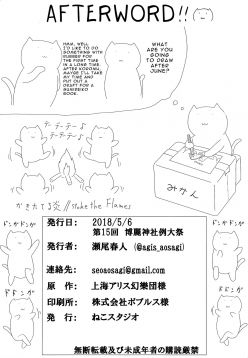 AFTERWORD!!
HMM, WELL,
I'D LIKE TO DO
SOMETHING WITH
SUMIREKO FOR
THE FIRST TIME
IN A LONG TIME.
AFTER KOROMU,
MAYBE I'LL TAKE
MY TIME AND
PUT OUT A
DRAFT FOR A
SUMIREKO
BOOK.
WHAT ARE
YOU GOING
TO DRAW
AFTER
JUNE?
テーテーテー♪
テーテーテー♪
みかん
かきたてる炎 // Stoke the Flames
ドンガドンガ
ドンガドンガ
発行日: 2018/5/6
第15回 博麗神社例大祭
発行者: 瀬尾春人 (@agis_aosagi)
連絡先: seoaosagi@gmail.com
原 作: 上海アリス幻樂団様
印刷所: 株式会社ポプルス様
発 行: ねこスタジオ
無断転載及び未成年者の購読厳禁